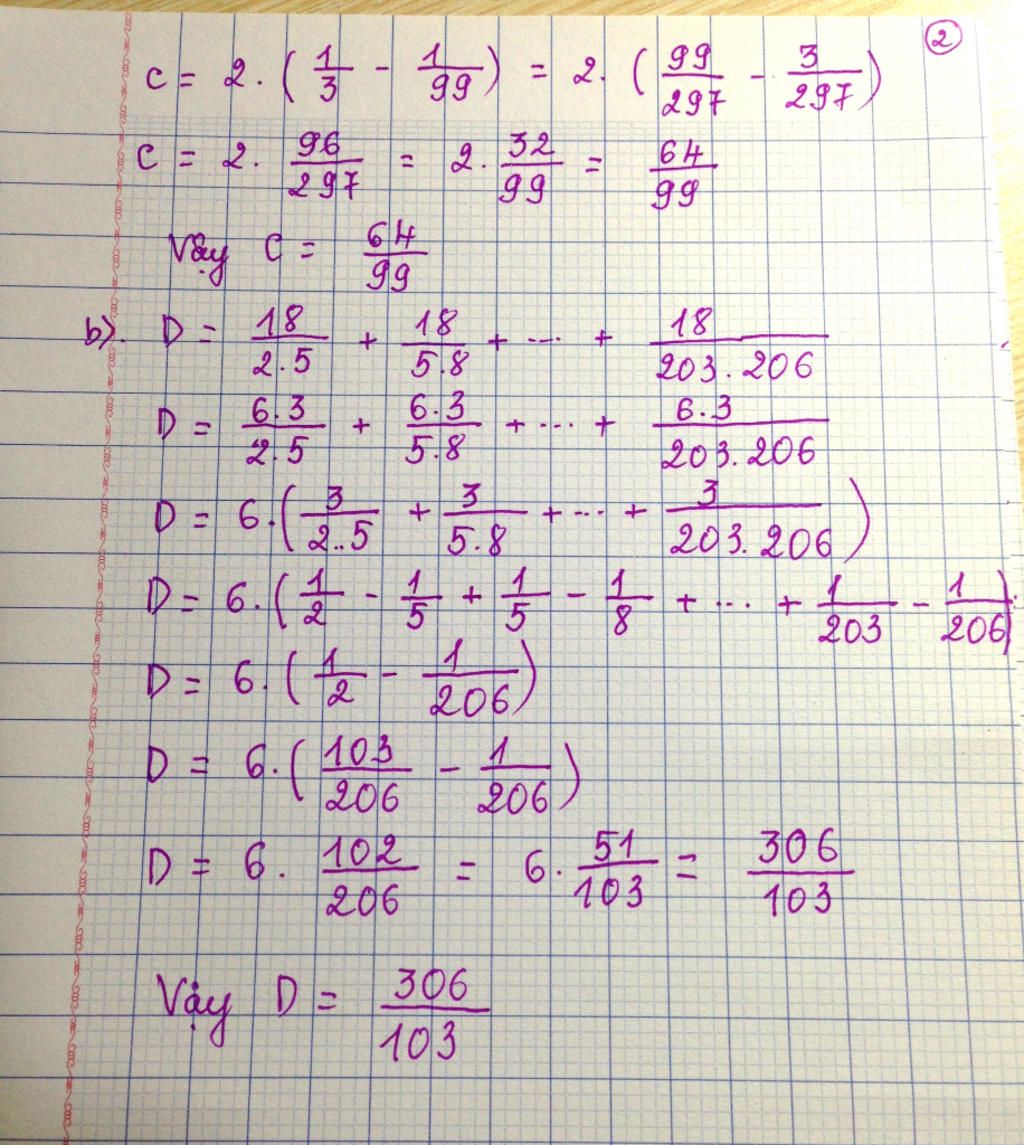 2
C = 2. (1/3 - 1/99) = 2. (99/297 - 3/297)
C = 2. 96/297 = 2. 32/99 = 64/99
Vậy C = 64/99
b). D = 18/2.5 + 18/5.8 + ... + 18/203.206
D = 6.3/2.5 + 6.3/5.8 + ... + 6.3/203.206
D = 6. (3/2..5 + 3/5.8 + ... + 3/203.206)
D = 6. (1/2 - 1/5 + 1/5 - 1/8 + ... + 1/203 - 1/206)
D = 6. (1/2 - 1/206)
D = 6. (103/206 - 1/206)
D = 6. 102/206 = 6. 51/103 = 306/103
Vậy D = 306/103